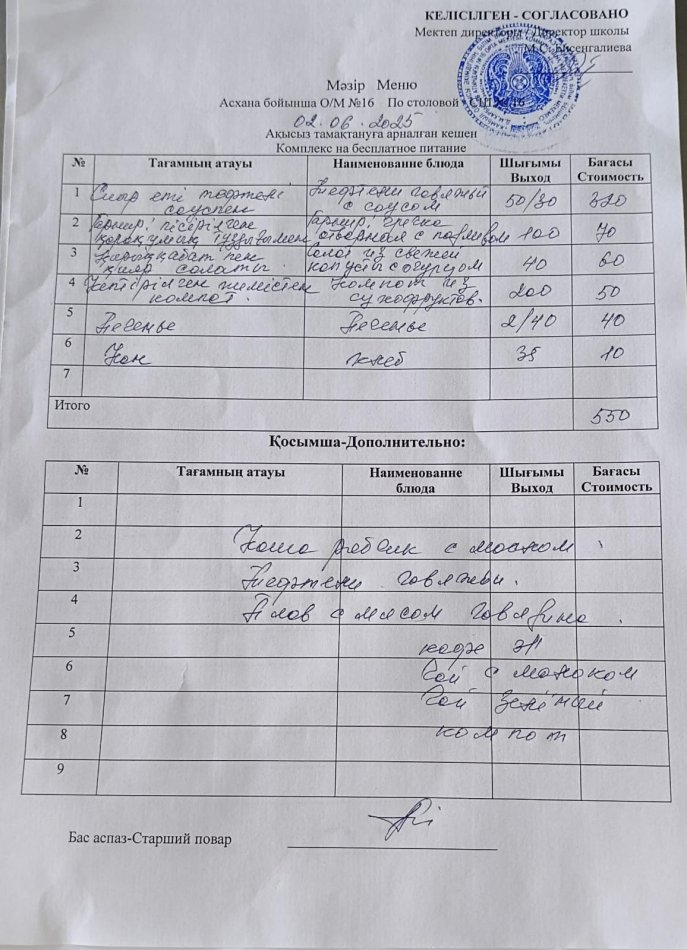 КЕЛІСІЛГЕН - СОГЛАСОВАНО
Мектеп директоры / Директор школы
М.С. Бисенгалиева
Мәзір Меню
Асхана бойынша О/М №16 По столовой СОШ №16
02.06.2025
Ақысыз тамақтануға арналған кешен
Комплекс на бесплатное питание
№ Тағамның атауы Наименование блюда Шығымы Выход Бағасы Стоимость
1 Сиыр еті тефтелі соуспен Тефтели говяжьи с соусом 50/30 320
2 Гарнир: пісірілген қарақұмық тұздығымен Гарнир: гречка отварная с подливом 100 70
3 Қырыққабат пен қияр салаты. Салат из свежей капусты с огурцом 40 60
4 Кептірілген жемістен компот. Компот из сухофруктов. 200 50
5 Печенье Печенье 2/40 40
6 Нан хлеб 35 10
7
Итого 550
Қосымша-Дополнительно:
№ Тағамның атауы Наименование блюда Шығымы Выход Бағасы Стоимость
1
2 Каша с маслом
3 Тефтели говяжьи.
4 Плов с мясом говядина.
5 кофе
6 Чай с молоком
7 Чай зелёный
8 компот
9
Бас аспаз-Старший повар